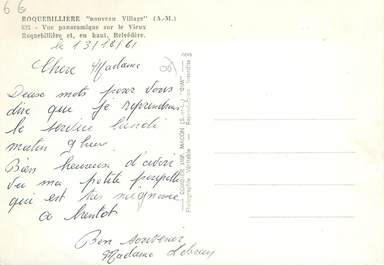 6 6
ROQUEBILLIERE "nouveau Village" (A.-M.)
- Vue panoramique sur le Vieux
Roquebillière et, en haut, Belvédère.
le 13/10/61
Chere Madame
Deux mots pour vous
dire que je reprendrai
le service lundi
matin 9 heures
Bien heureuse d'avoir
vu ma petite poupette
qui est très mignonne
a bientot
Bon souvenir
Madame
COMBIER IMP. MACON (S.-&-L.) "CIM"
Photographie Véritable - Reproduction interdite